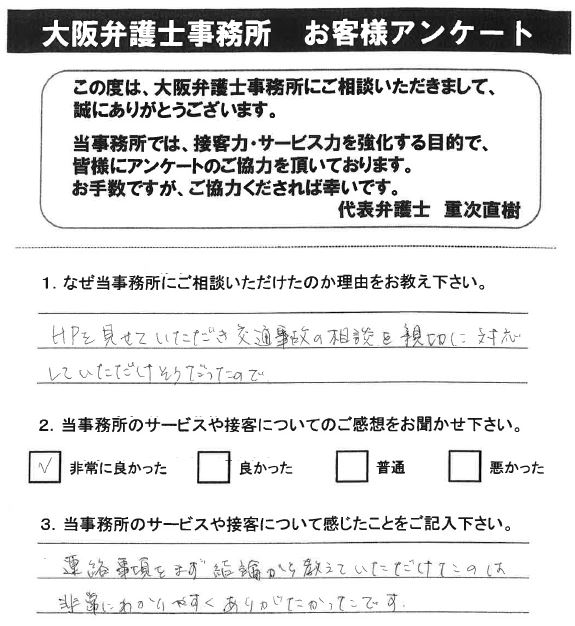 大阪弁護士事務所　お客様アンケート
この度は、大阪弁護士事務所にご相談いただきまして、
誠にありがとうございます。
当事務所では、接客力・サービス力を強化する目的で、
皆様にアンケートのご協力を頂いております。
お手数ですが、ご協力くだされば幸いです。
代表弁護士　重次直樹
1. なぜ当事務所にご相談いただけたのか理由をお教え下さい。
HPを見せていただき交通事故の相談を親切に対応
していただけそうだったので
2. 当事務所のサービスや接客についてのご感想をお聞かせ下さい。
✓ 非常に良かった　□ 良かった　□ 普通　□ 悪かった
3. 当事務所のサービスや接客について感じたことをご記入下さい。
連絡事項をまず結論から教えていただけたのは
非常にわかりやすくありがたかったです.